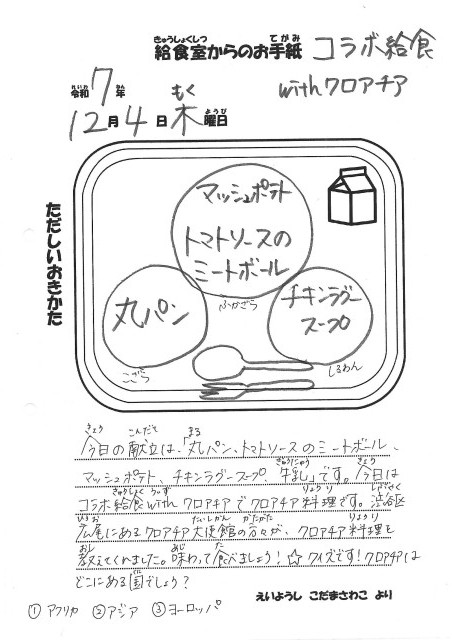 給食室からのお手紙 コラボ給食
withクロアチア
令和7年
12月4日木曜日
ただしいおきかた
マッシュポテト
トマトソースの
ミートボール
ふかざら
丸パン
こざら
チキンラグー
スープ
しるわん
今日の献立は、「丸パン、トマトソースのミートボール、
マッシュポテト、チキンラグースープ 牛乳」です。今日は
コラボ給食withクロアチアでクロアチア料理です。渋谷区
広尾にあるクロアチア大使館の方々が、クロアチア料理を
教えてくれました。味わって食べましょう!☆クイズです!クロアチアは
どこにある国でしょう?
①アフリカ ②アジア ③ヨーロッパ
えいようし こだまさわこ より